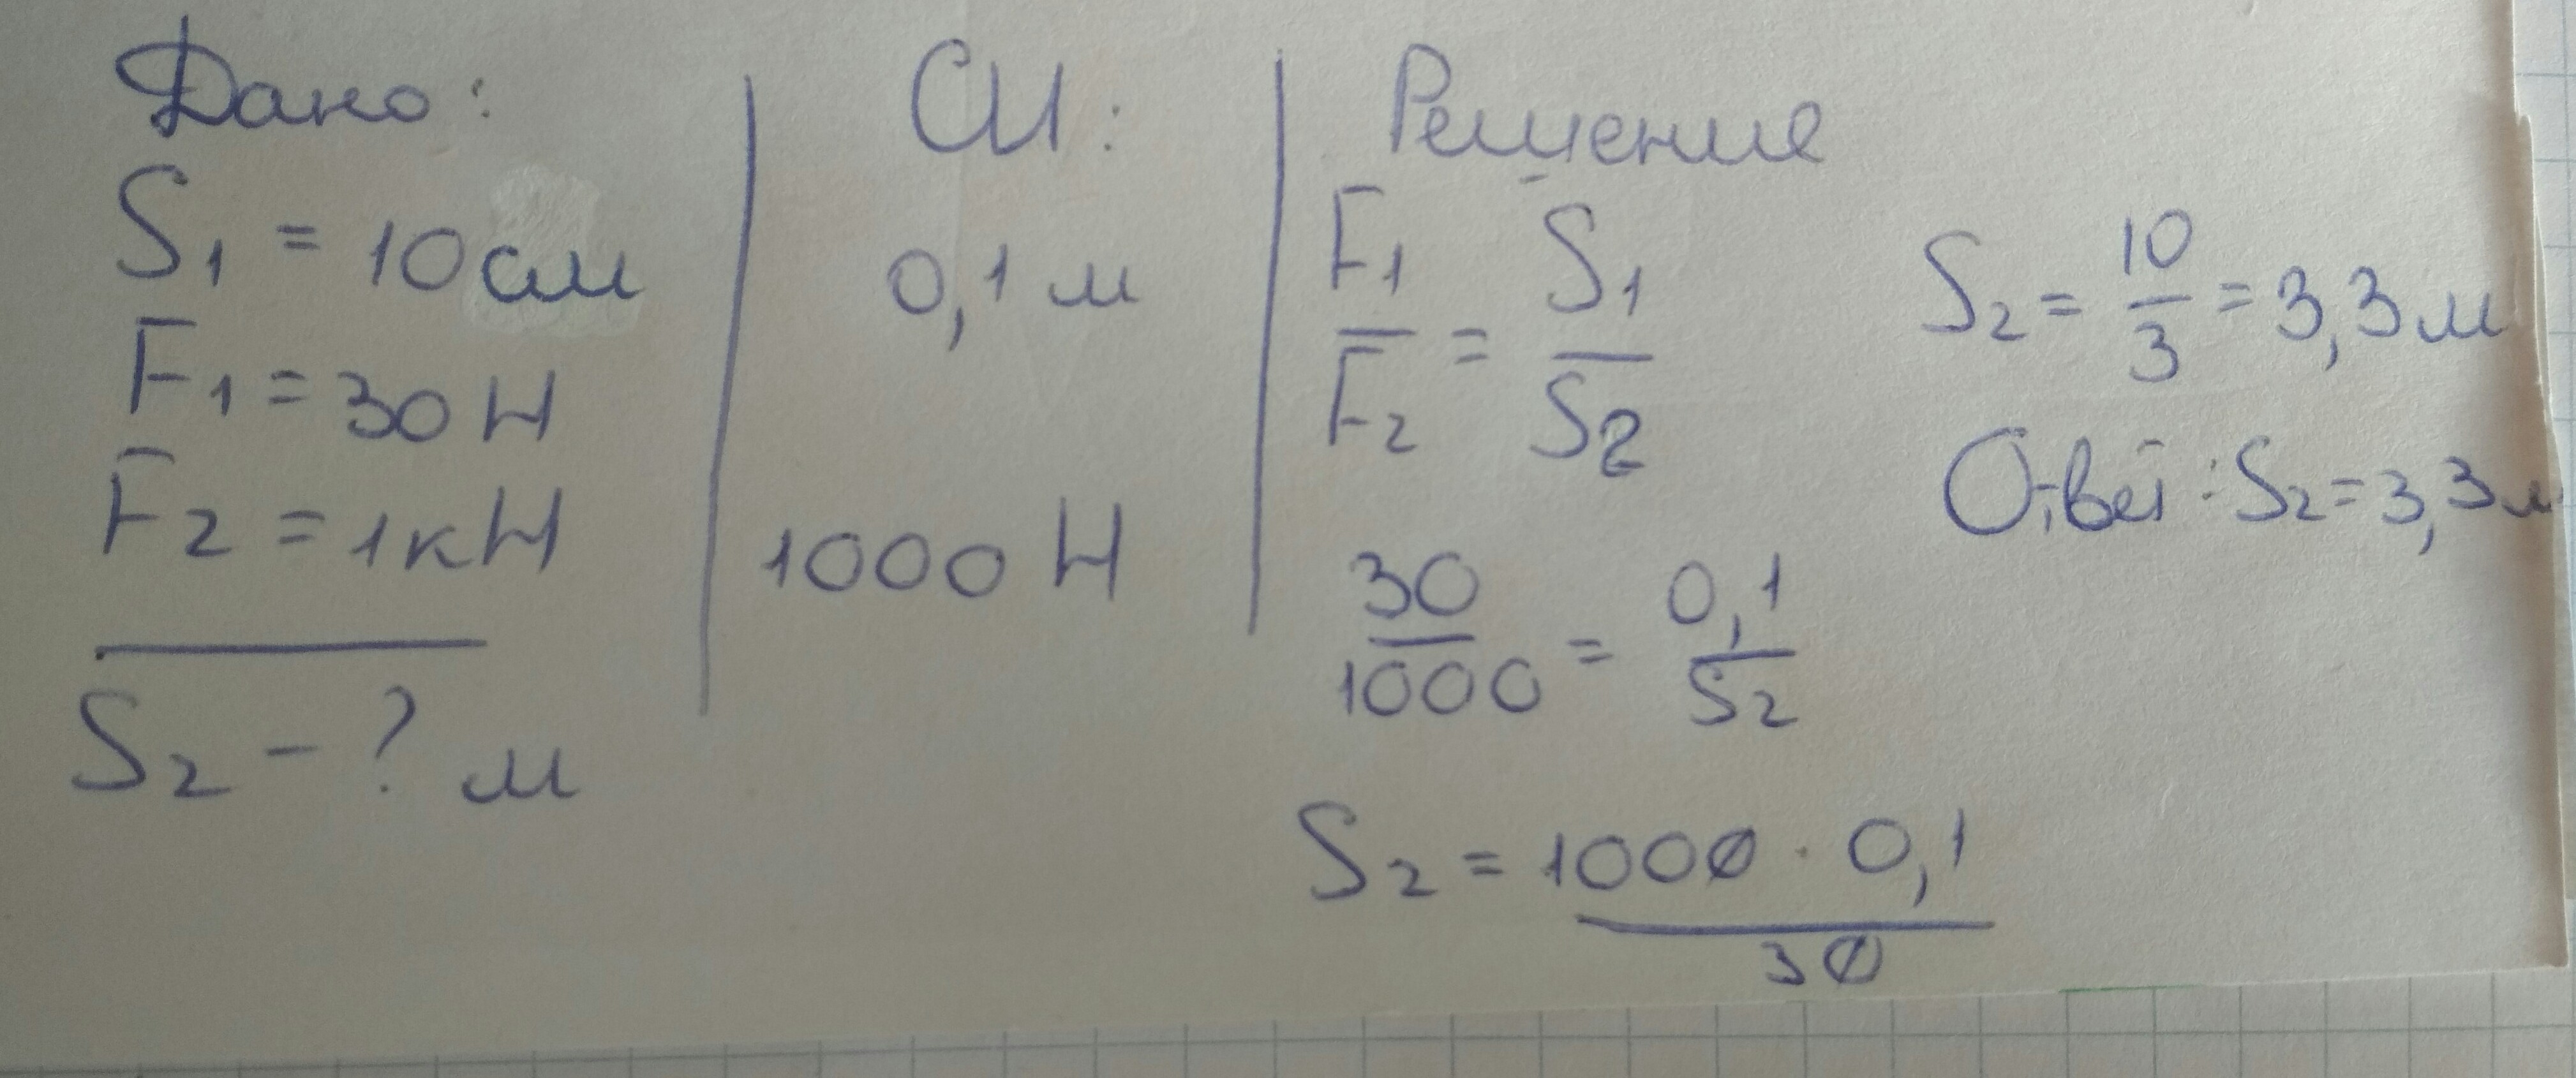 Дано:
S₁ = 10 см
F₁ = 30 Н
F₂ = 1 кН
S₂ - ? м
СИ:
0,1 м
1000 Н
Решение
F₁/F₂ = S₁/S₂
30/1000 = 0,1/S₂
S₂ = 1000 · 0,1/30
S₂ = 10/3 = 3,3 м
Ответ: S₂ = 3,3 м